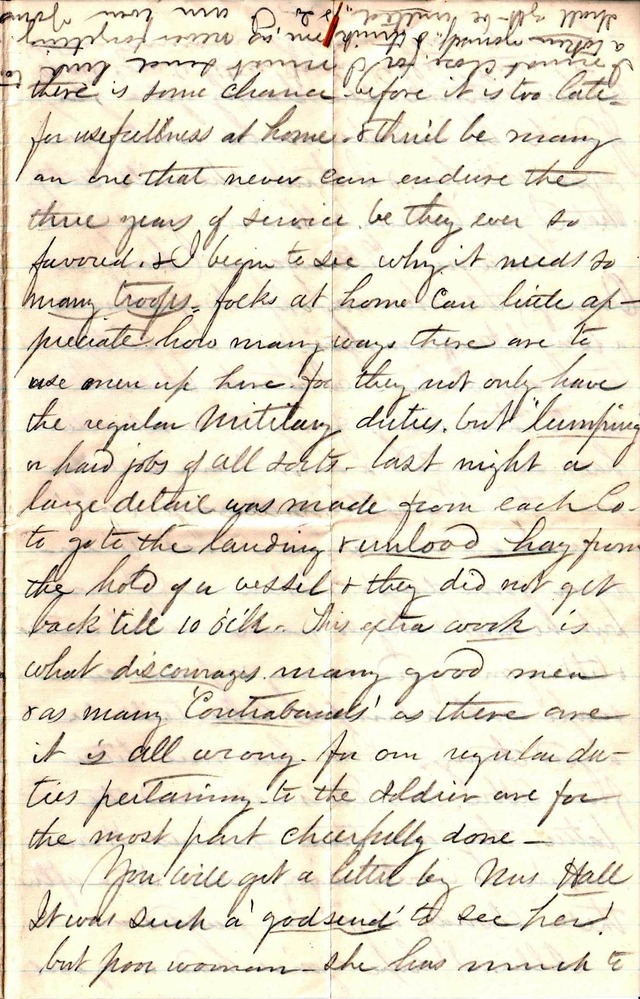 there is some chance before it is too late
for usefullness at home. & thu'll be many
an one that never can endure the
three years of service. be they ever so
favored. & I begin to see why it needs so
many troops. folks at home can little ap-
preciate how many ways there are to
use men up here. for they not only have
the regular Military duties. but 'lumping
or hard jobs of all sorts. last night a
large detail was made from each Co.
to go to the landing & unload hay from
the hold of a vessel & they did not get
back 'till 10 o'clk. This extra work is
what discourages many good men
& as many 'Contrabands' as there are
it is all wrong. for our regular du-
ties pertaining to the soldier are for
the most part cheerfully done —
You will get a letter by Mrs Hall
It was such a 'godsend' to see her!
but poor woman - she has much to
I must close, for I must send
a token
shall not be
never forgetting